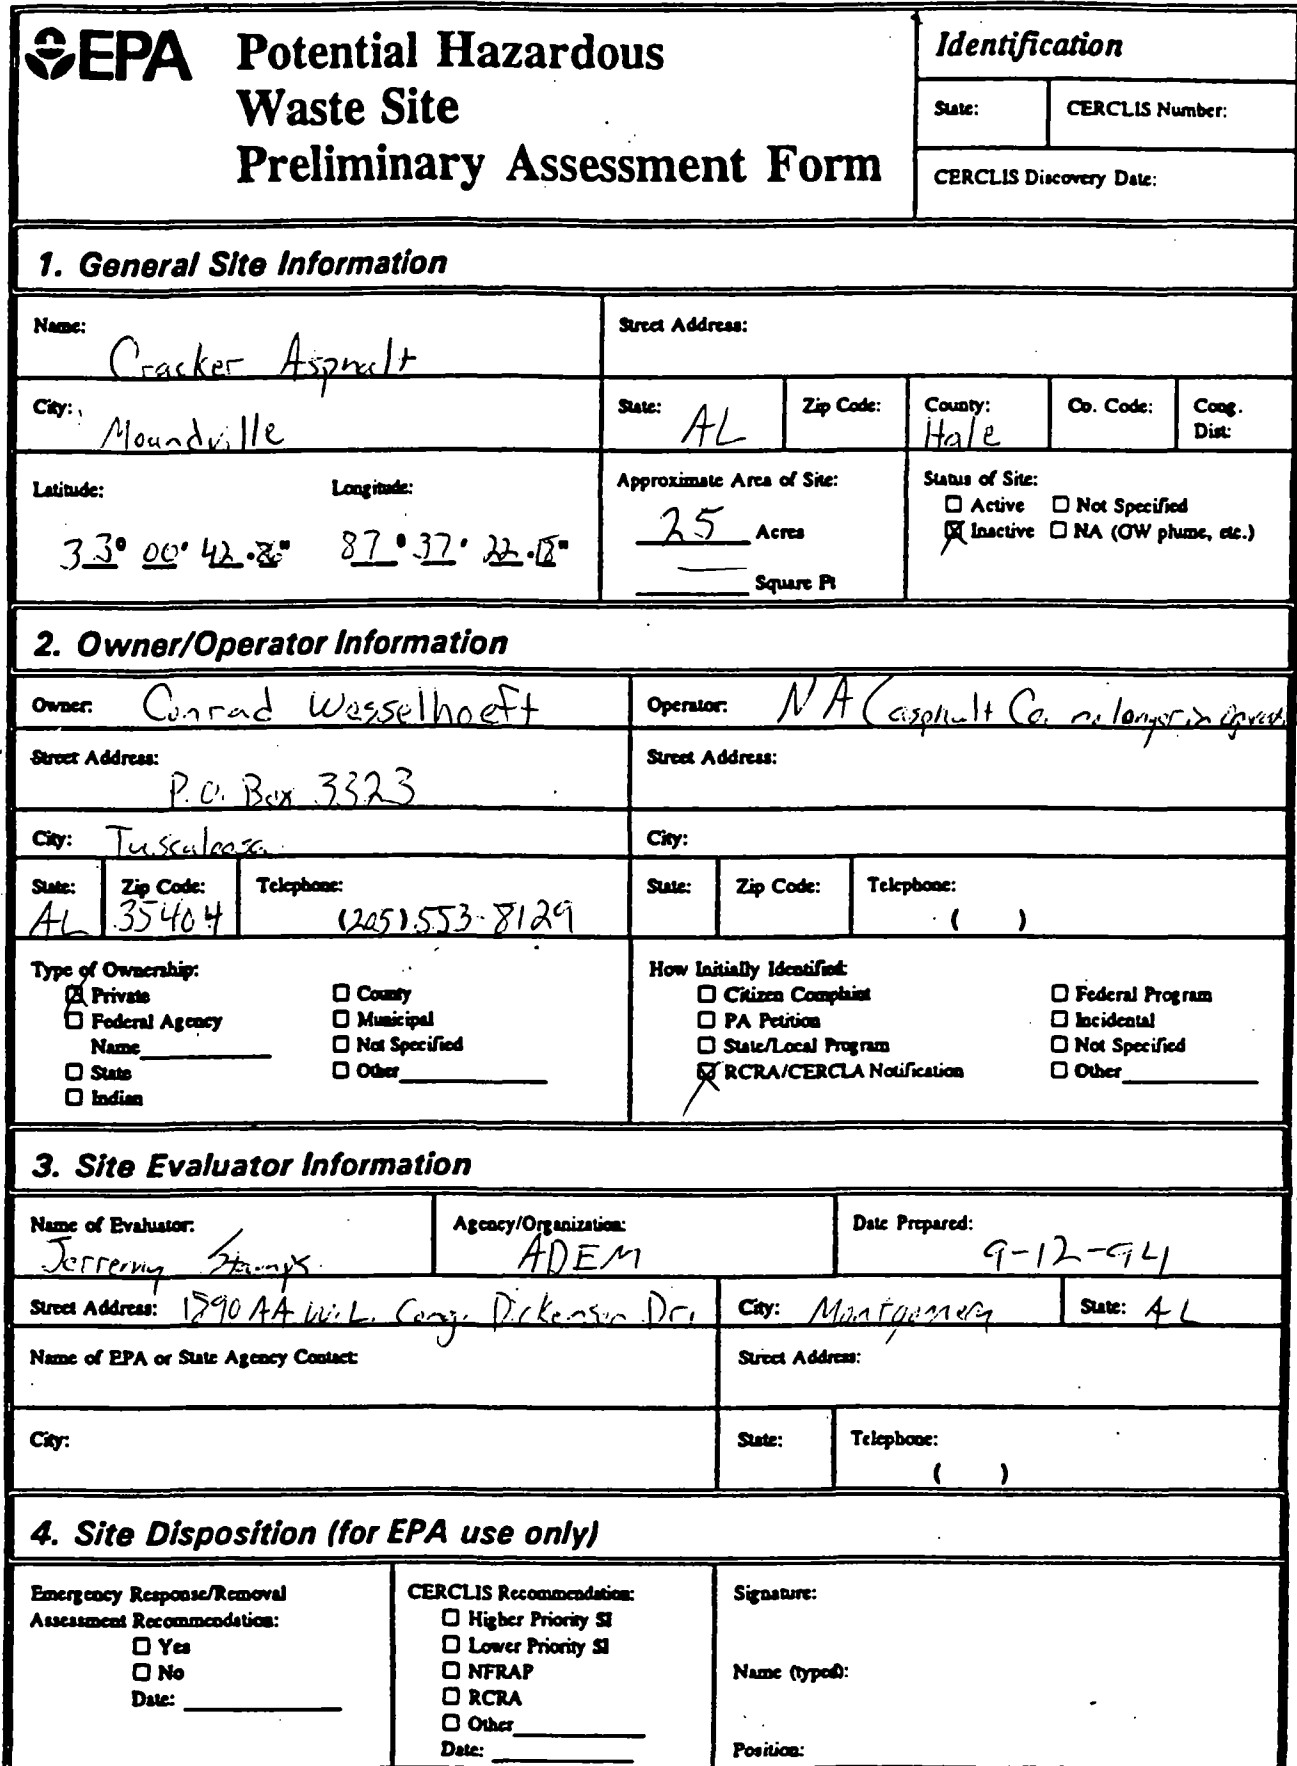 EPA Potential Hazardous
Waste Site
Preliminary Assessment Form
Identification
State: CERCLIS Number:
CERCLIS Discovery Date:
1. General Site Information
Name: Cracker Asphalt
Street Address:
City: Moundville
State: AL
Zip Code:
County: Hale
Co. Code:
Cong. Dist:
Latitude: 33° 00' 42.
Longitude: 87° 37' 22.18"
Approximate Area of Site:
25 Acres
Square Ft
Status of Site:
Active Not Specified
Inactive NA (GW plume, etc.)
2. Owner/Operator Information
Owner: Conrad Wesselhoeft
Operator: NA (asphalt Co. no longer in
Street Address: P.O. Box 3323
Street Address:
City: Tuscaloosa
City:
State: AL
Zip Code: 35404
Telephone: (205) 553-8129
State:
Zip Code:
Telephone: ( )
Type of Ownership:
Private County
Federal Agency Municipal
Name Not Specified
State Other
Indian
How Initially Identified:
Citizen Complaint Federal Program
PA Petition Incidental
State/Local Program Not Specified
RCRA/CERCLA Notification Other
3. Site Evaluator Information
Name of Evaluator: Jerremy Stamps
Agency/Organization: ADEM
Date Prepared: 9-12-94
Street Address: 1890 AA W.L. Cong. Dickenson Dr.
City: Montgomery
State: AL
Name of EPA or State Agency Contact:
Street Address:
City:
State:
Telephone: ( )
4. Site Disposition (for EPA use only)
Emergency Response/Removal
Assessment Recommendation:
Yes
No
Date:
CERCLIS Recommendation:
Higher Priority SI
Lower Priority SI
NFRAP
RCRA
Other
Date:
Signature:
Name (typed):
Position: